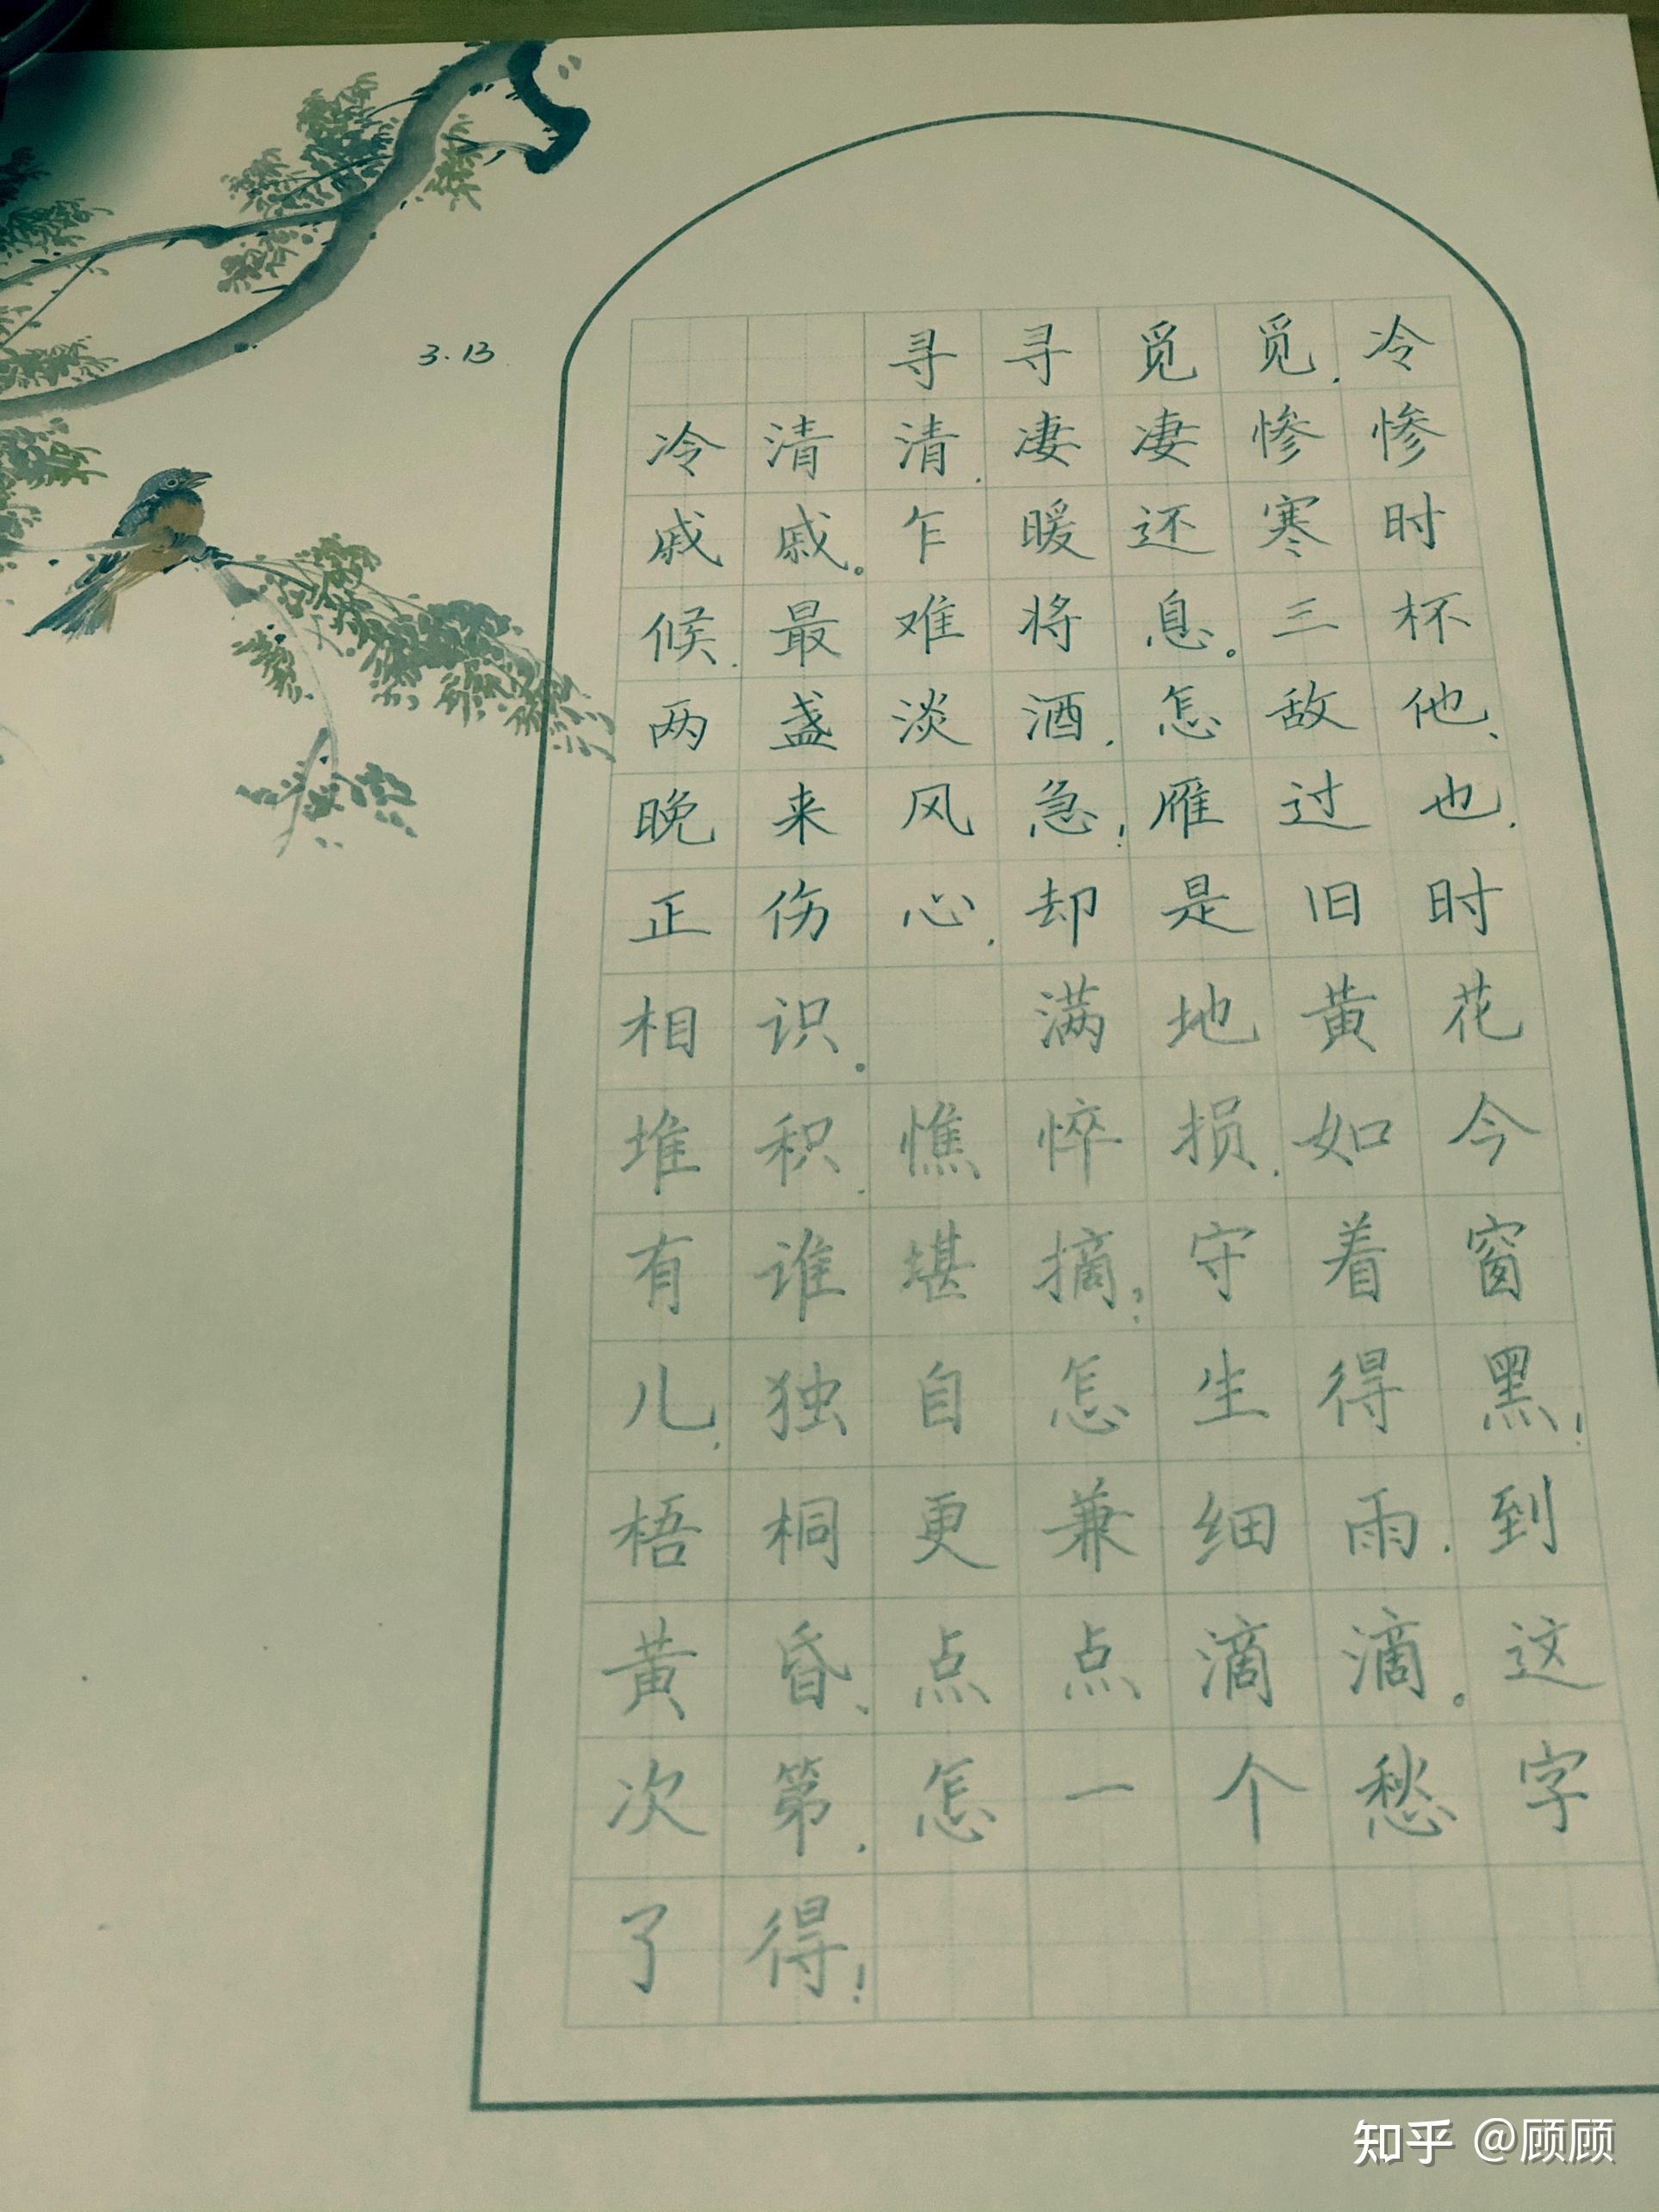 3.13
寻寻觅觅,冷
冷清清,凄凄惨惨
戚戚。乍暖还寒时
候,最难将息。三杯
两盏淡酒,怎敌他、
晚来风急!雁过也,
正伤心,却是旧时
相识。 满地黄花
堆积,憔悴损,如今
有谁堪摘?守着窗
儿,独自怎生得黑!
梧桐更兼细雨,到
黄昏、点点滴滴。这
次第,怎一个愁字
了得!
知乎 @顾顾